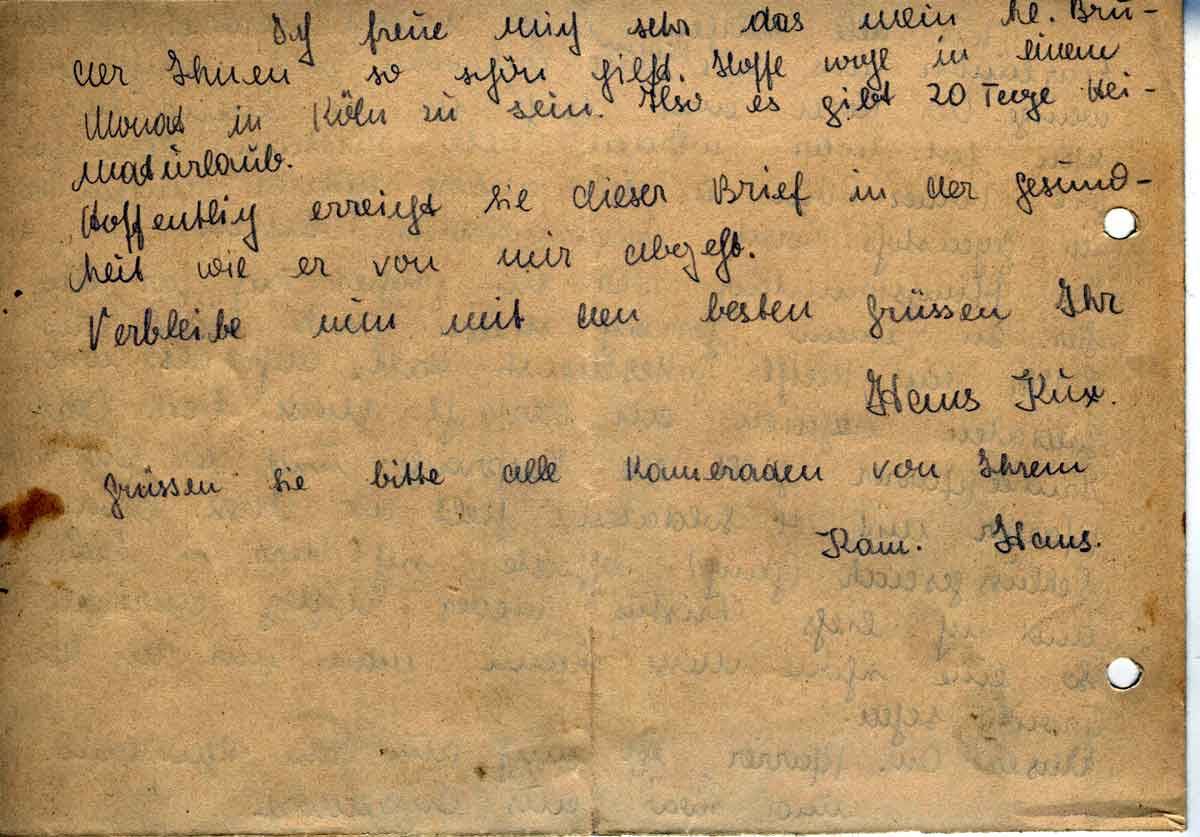 Ich freue mich sehr das mein kl. Bru-
der Ihnen so schön hilft. Hoffe auch in einem
Monat in Köln zu sein. Also es gibt 20 Tage Hei-
maturlaub.
Hoffentlich erreicht Sie dieser Brief in der Gesund-
heit wie er von mir abgeht.
Verbleibe nun mit den besten Grüssen Ihr
Hans Kux.
Grüssen Sie bitte alle Kameraden von Ihrem
Kam. Hans.